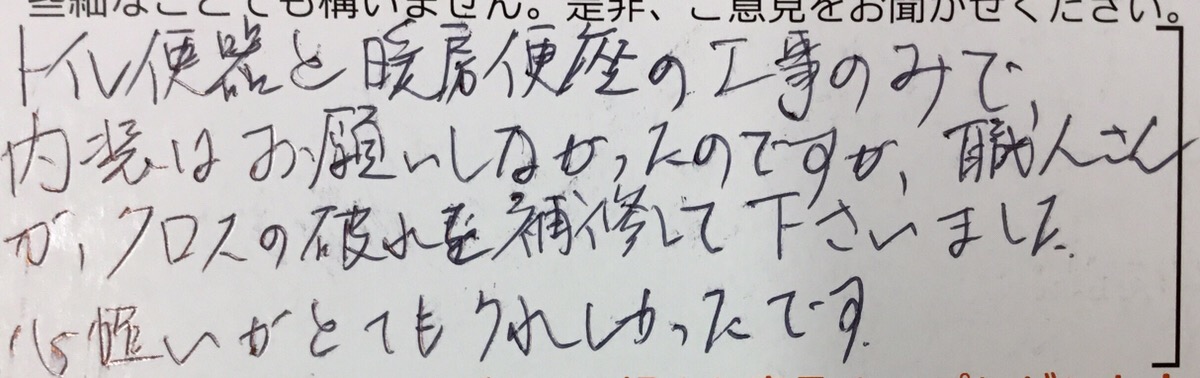 些細なことでも構いません。是非、ご意見をお聞かせください。
トイレ便器と暖房便座の工事のみで、
内装はお願いしなかったのですが、職人さん
が、クロスの破れを補修して下さいました。
心遣いがとてもうれしかったです。